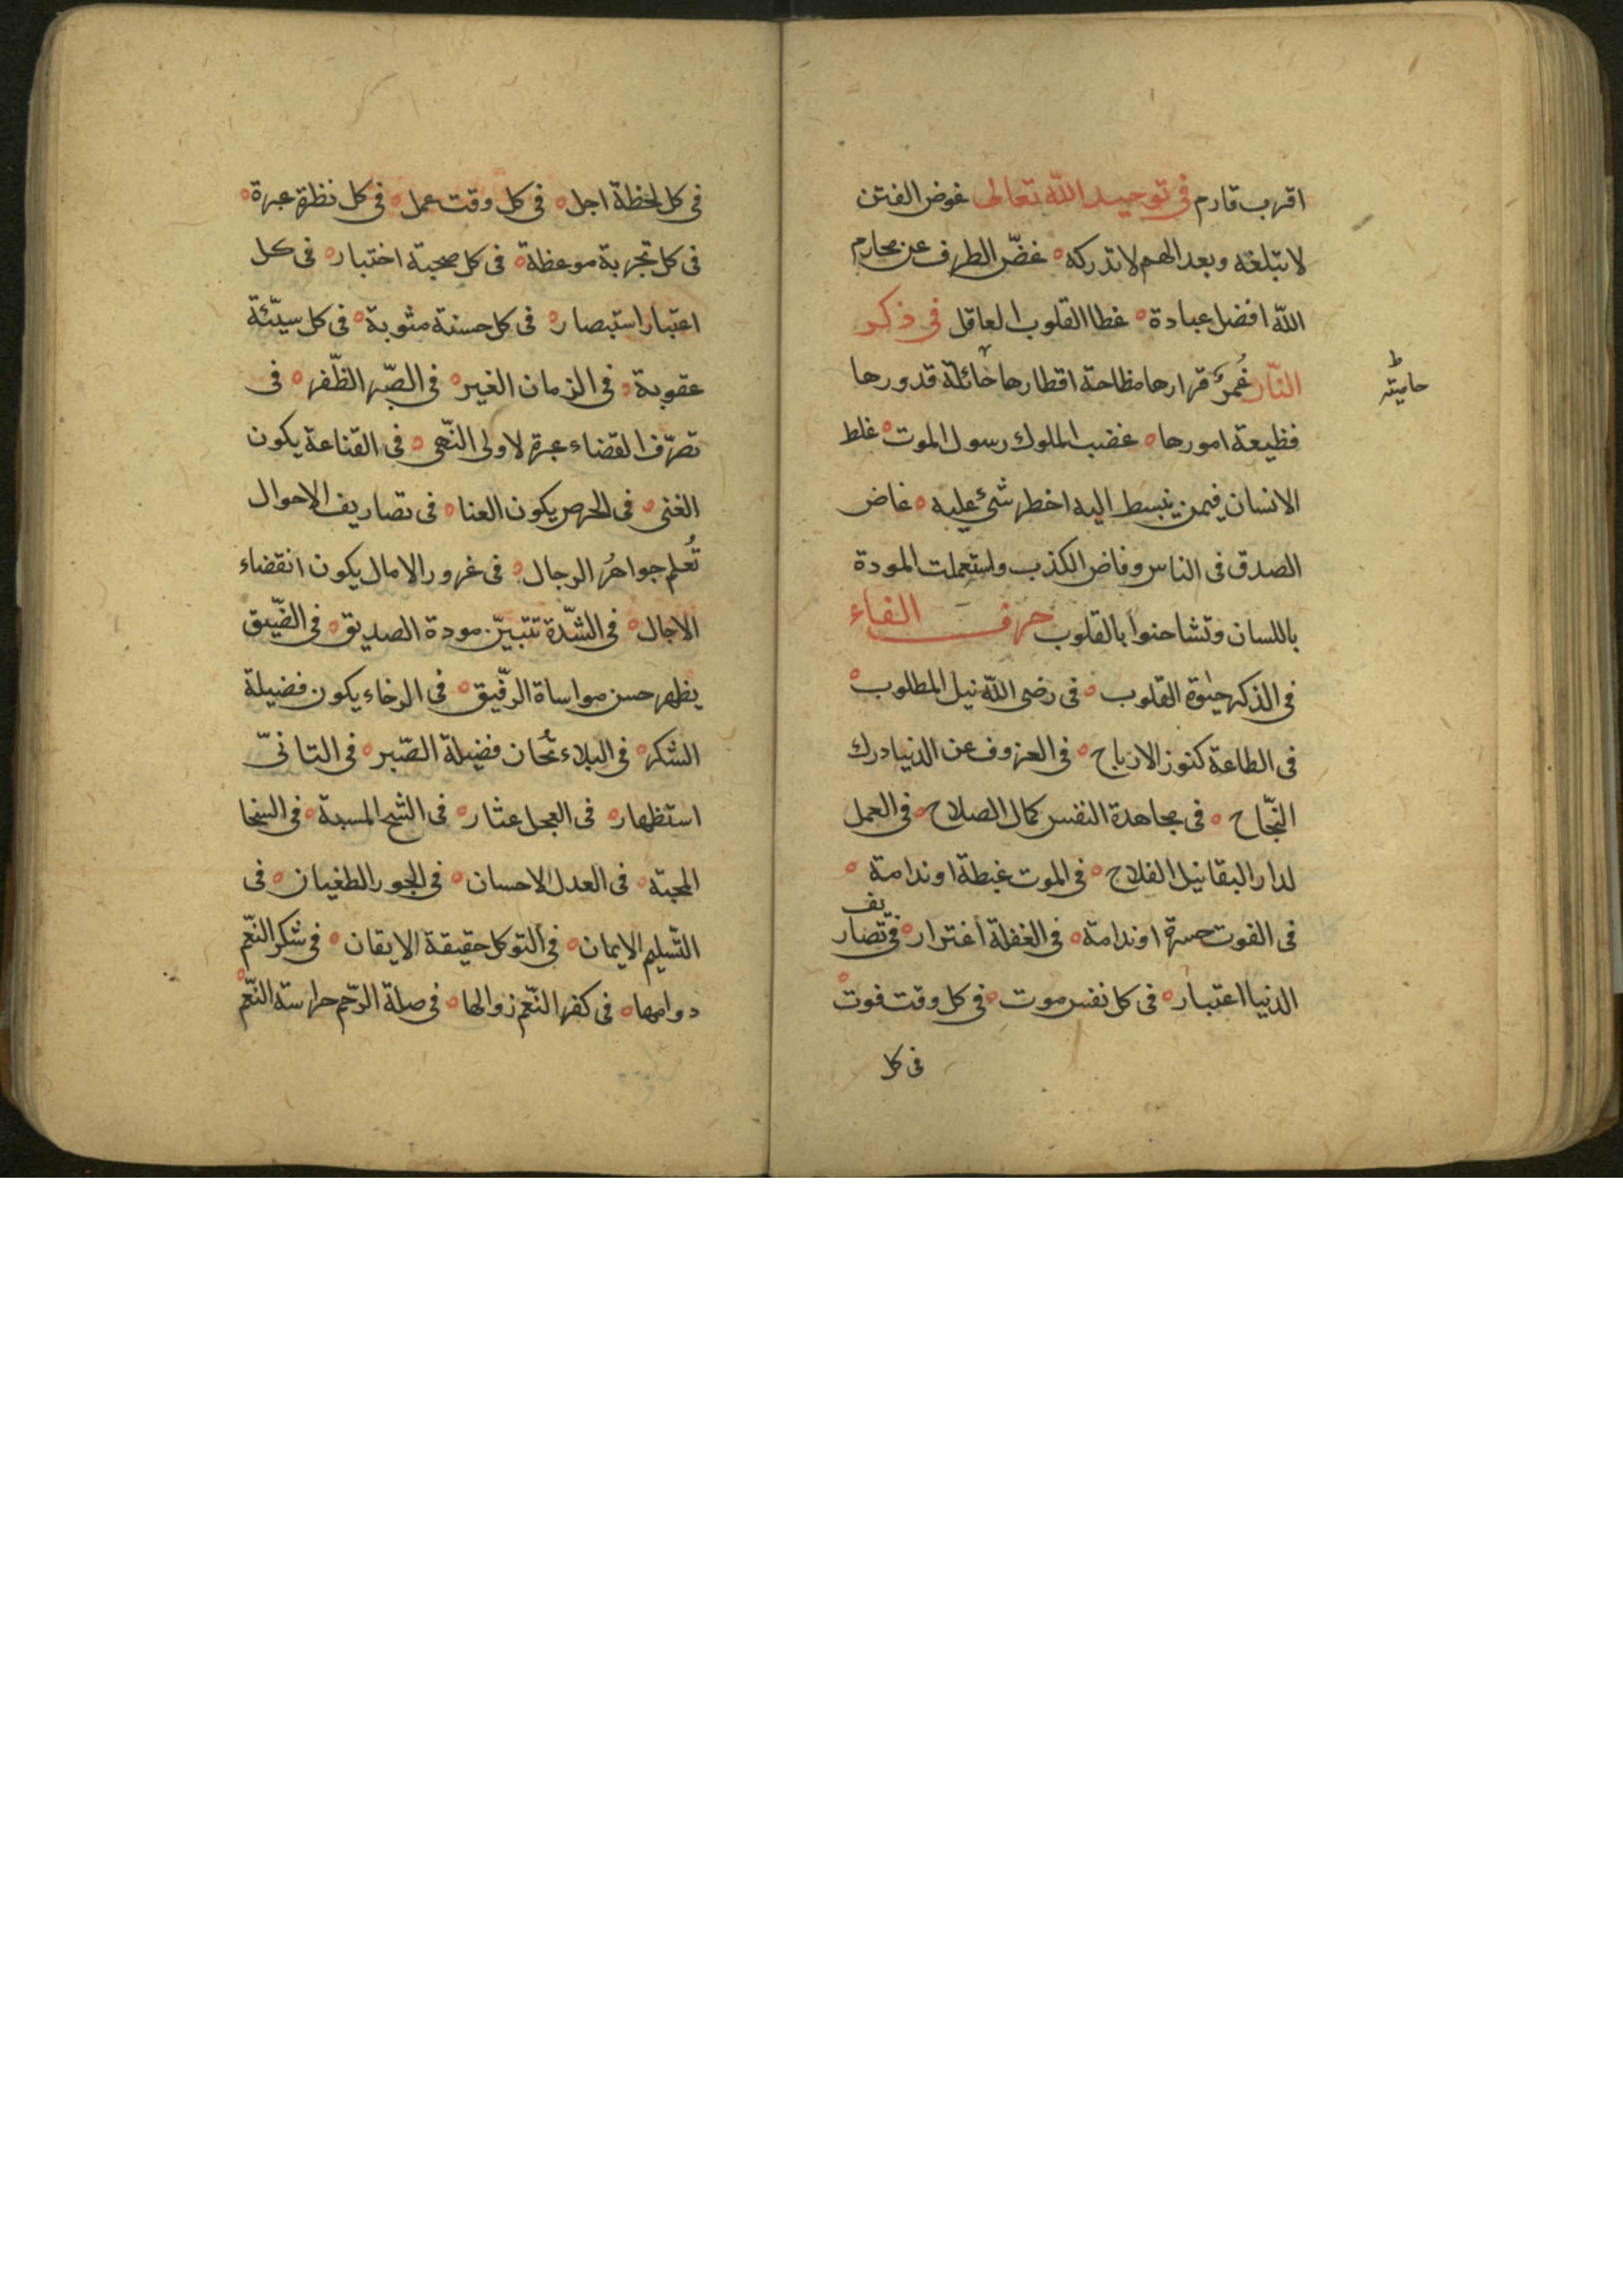 اقرب قادم فى توحيد الله تعالى غوض الفتن
لا تبلغه وبعد الهمم لا تدركه ه غضّ الطرف عن محارم
الله افضل عبادة ه غطا القلوب العاقل فى ذكر
النّار غُمرٌ قرارها مظلمة اقطارها حائلة قدورها
حاميته
فظيعة امورها ه غضب الملوك رسول الموت ه غلط
الانسان فيمن ينبسط اليه اخطر شئ عليه ه غاض
الصدق فى الناس وفاض الكذب واستعملت المودة
باللسان وتشاحنوا بالقلوب حرف الفاء
فى الذكر حيٰوة القلوب ه فى رضى الله نيل المطلوب ه
فى الطاعة كنوز الارباح ه فى العزوف عن الدنيا درك
النّجاح ه فى مجاهدة النفس كمال الصلاح ه فى العمل
لدار البقا نيل الفلاح ه فى الموت غبطة او ندامة ه
فى الفوت حسرة او ندامة ه فى الغفلة اغترار ه فى تصاريف
الدنيا اعتبار ه فى كل نفس موت ه فى كل وقت فوت ه
فى كل
فى كل لحظة اجل ه فى كل وقت عمل ه فى كل نظرة عبرة ه
فى كل تجربة موعظة ه فى كل صحبة اختبار ه فى كل
اعتبار استبصار ه فى كل حسنة مثوبة ه فى كل سيّئة
عقوبة ه فى الزمان الغير ه فى الصّبر الظّفر ه فى
تصرّف القضاء عبرة لاولى النّهى ه فى القناعة يكون
الغنى ه فى الحرص يكون العنا ه فى تصاريف الاحوال
تُعلم جواهرُ الرجال ه فى غرور الامال يكون انقضاء
الاجال ه فى الشدّة تتبيّن مودة الصديق ه فى الضّيق
يظهر حسن مواساة الرّفيق ه فى الرخاء يكون فضيلة
الشكر ه فى البلاء تُحان فضيلة الصّبر ه فى التانىّ
استظهار ه فى العجل عثار ه فى الشح المسبة ه فى السخا
المحبّة ه فى العدل الاحسان ه فى الجور الطغيان ه فى
التّسليم الايمان ه فى التوكل حقيقة الايقان ه فى شكر النّعم
دوامها ه فى كفر النّعم زوالها ه فى صلة الرّحم حراسته النّعم ه